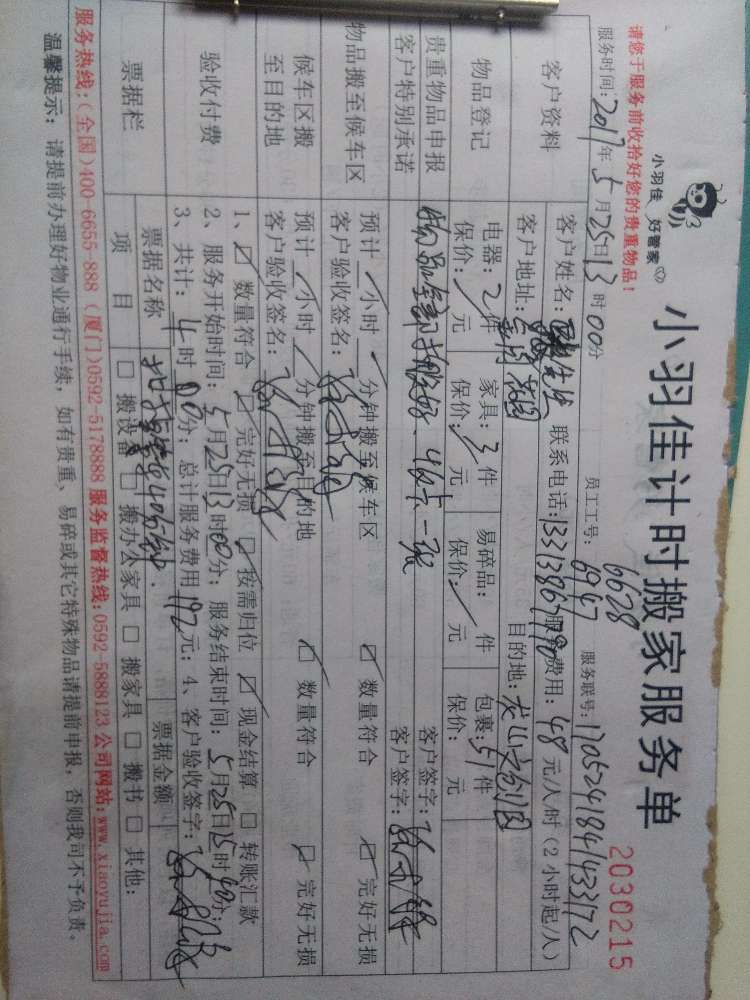 小羽佳 好管家
小羽佳计时搬家服务单
2030215
请您于服务前收拾好您的贵重物品!
员工工号: 6628 6947
服务联号: 170524184143372
服务时间: 2017年5月25日13时00分
客户资料
客户姓名: 联系电话: 服务费用: 48元/人/时(2小时起/人)
客户地址: 目的地: 龙山文创园
物品登记
电器: 2件 家具: 3件 易碎品: 件 包裹: 51件
保价: / 元 保价: / 元 保价: / 元 保价: 元
贵重物品申报
客户特别承诺
客户签字:
客户签字:
物品搬至候车区
预计 / 小时 / 分钟搬至候车区 ☑ 数量符合 ☑ 完好无损
客户验收签名:
候车区搬
至目的地
预计 / 小时 / 分钟搬至目的地 ☑ 数量符合 ☑ 完好无损
客户验收签名:
验收付费
1、☑ 数量符合 ☑ 完好无损 ☑ 按需归位 ☑ 现金结算 □ 转账汇款
2、服务开始时间: 5月25日13时00分; 服务结束时间: 5月25日15时40分;
3、共计: 4时00分; 总计服务费用192元; 4、客户验收签字:
票据栏
票据名称 票据金额
项目 □ 搬设备 □ 搬办公家具 □ 搬家具 □ 搬书 □ 其他:
服务热线:(全国)400-6655-888 (厦门)0592-5178888 服务监督热线:0592-5888123 公司网站:www.xiaoyujia.com
温馨提示: 请提前办理好物业通行手续, 如有贵重、易碎或其它特殊物品请提前申报, 否则我司不予负责。